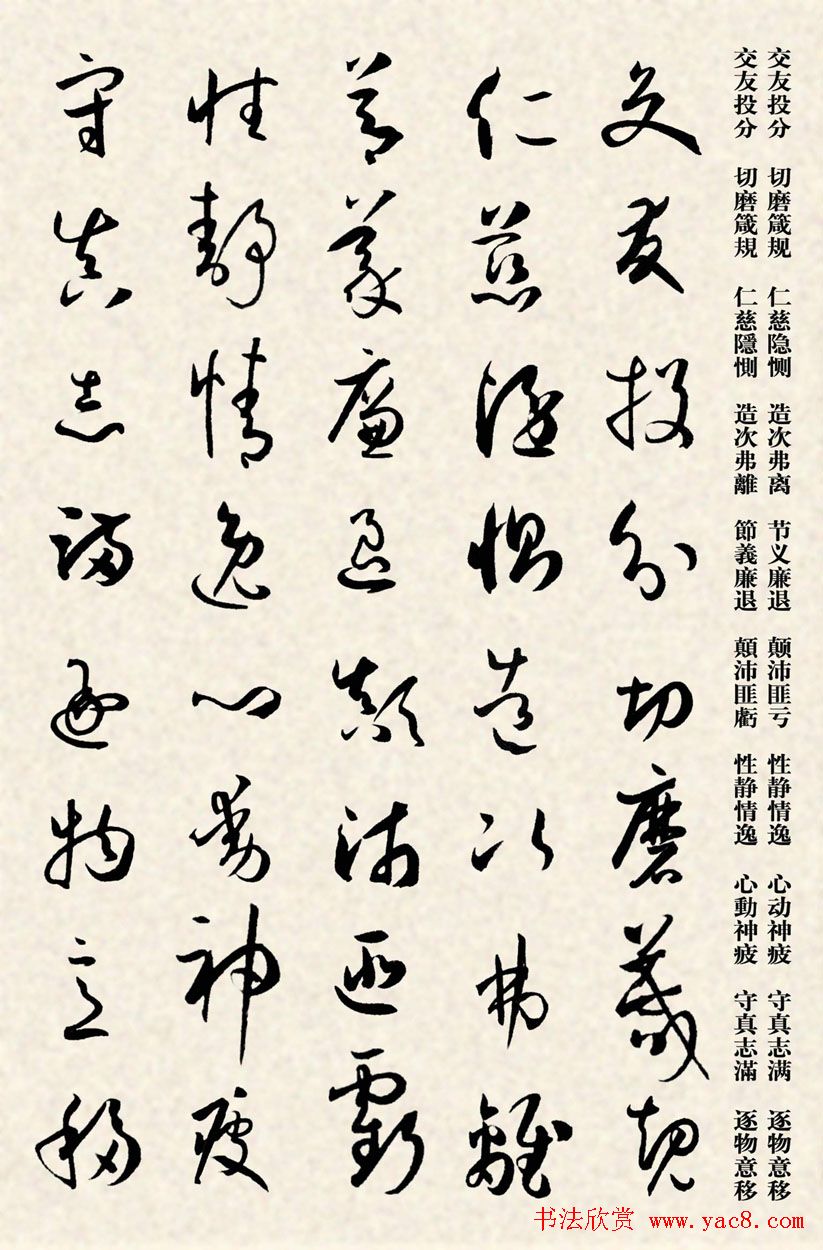 交友投分 切磨箴规 仁慈隐恻 造次弗离 节义廉退 颠沛匪亏 性静情逸 心动神疲 守真志满 逐物意移
交友投分 切磨箴規 仁慈隱惻 造次弗離 節義廉退 顛沛匪虧 性静情逸 心動神疲 守真志滿 逐物意移
交友投分切磨箴規
仁慈隱惻造次弗離
節義廉退顛沛匪虧
性静情逸心動神疲
守真志滿逐物意移
书法欣赏 www.yac8.com